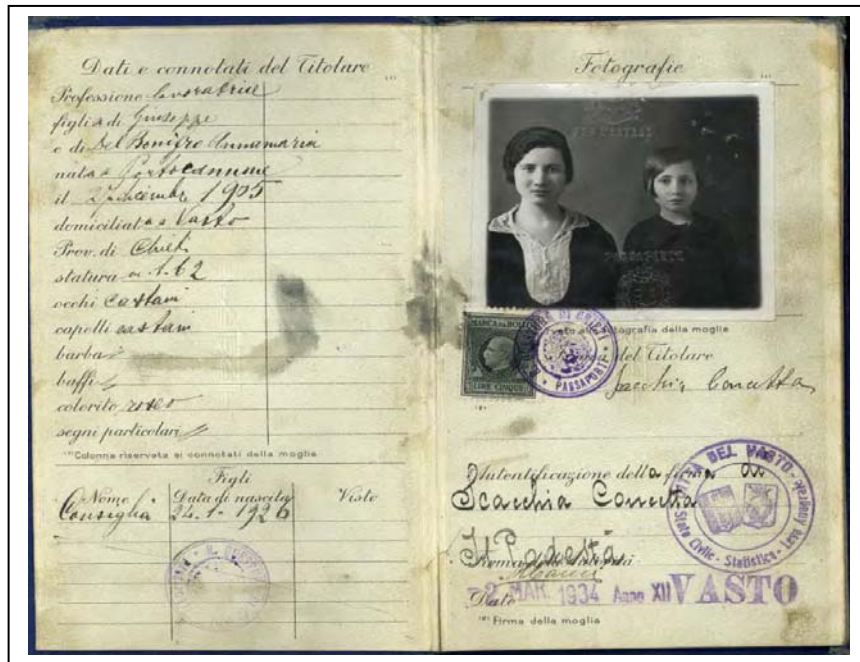 Dati e connotati del Titolare
Professione lavoratrice
figlia di Giuseppe
e di Del Bonifro Annamaria
nata a Portocannone
il 27 dicembre 1905
domiciliata a Vasto
Prov. di Chieti
statura m 1.62
occhi castani
capelli castani
barba //
baffi //
colorito roseo
segni particolari //
Colonna riservata ai connotati della moglie
Figli
Nome Data di nascita Visto
Consiglia 24.1-1926
Fotografie
PASSAPORTI
fotografia della moglie
MARCA DA BOLLO
LIRE CINQUE
DI CHIETI
PASSAPORTI
del Titolare
Scacchia Concetta
Autentificazione della firma di
Scacchia Concetta
Il Podestà
Firma dell'Autorità
Data 2 MAR. 1934 Anno XII VASTO
Firma della moglie
CITTÀ DEL VASTO
Stato Civile - Statistica - Leva